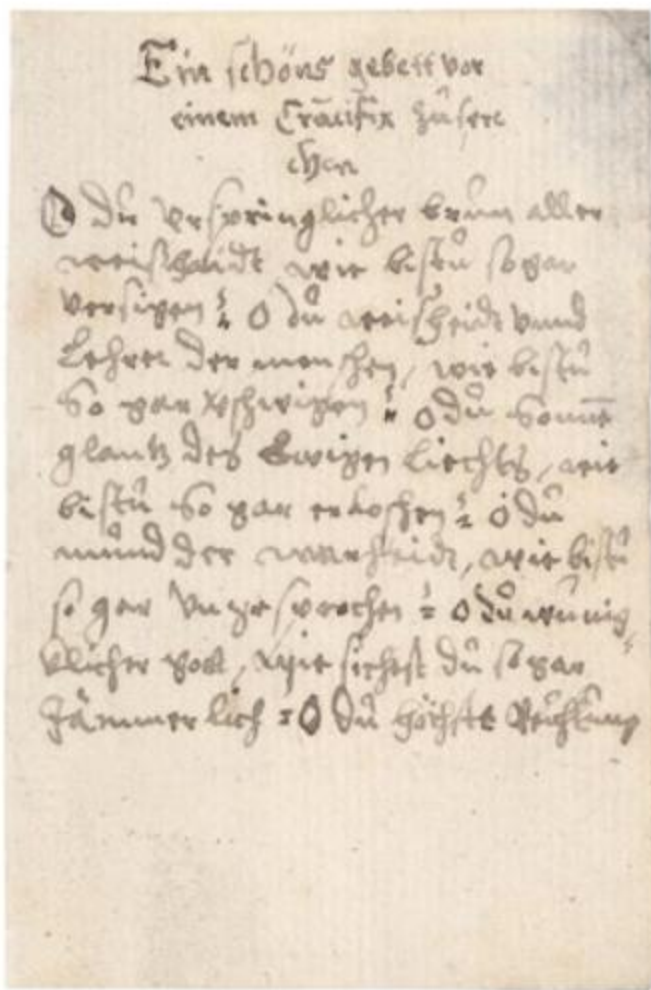 Ein schöns gebett vor
einem Crucifix zůspre
chen
O du vrspringlicher brunn aller
weißhaidt wie bistu so gar
versigen O du weißheidt vnnd
Lehrer der menschen, wie bistu
so gar vschwigen O du Sonnē
glantz des Ewigen Liechts, wie
bistu so gar erloschen O du
mund der warheidt, wie bistu
so gar vngesprochen O du wunig
klicher gott, wie sichest du so gar
Jämmerlich O du höchste